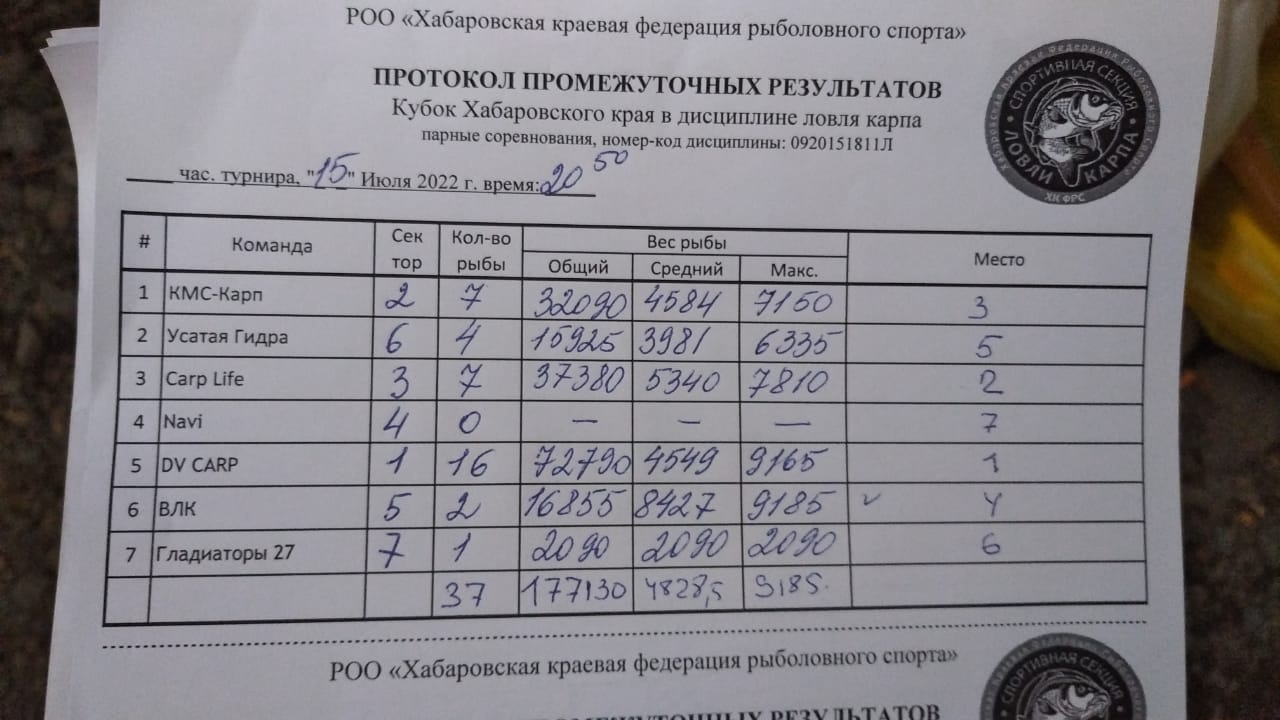 РОО «Хабаровская краевая федерация рыболовного спорта»
ПРОТОКОЛ ПРОМЕЖУТОЧНЫХ РЕЗУЛЬТАТОВ
Кубок Хабаровского края в дисциплине ловля карпа
парные соревнования, номер-код дисциплины: 0920151811Л
____ час. турнира, "15" Июля 2022 г. время: 20 50
Хабаровская Краевая Федерация Рыболовного Спорта
СПОРТИВНАЯ СЕКЦИЯ
ЛОВЛИ КАРПА
ХК ФРС
# Команда Сектор Кол-во рыбы Вес рыбы Место
Общий Средний Макс.
1 КМС-Карп 2 7 32090 4584 7150 3
2 Усатая Гидра 6 4 15925 3981 6335 5
3 Carp Life 3 7 37380 5340 7810 2
4 Navi 4 0 — — — 7
5 DV CARP 1 16 72790 4549 9165 1
6 ВЛК 5 2 16855 8427 9185 ✓ 4
7 Гладиаторы 27 7 1 2090 2090 2090 6
37 177130 4828,5 9185.
РОО «Хабаровская краевая федерация рыболовного спорта»
СПОРТИВНАЯ СЕКЦИЯ
ПРОМЕЖУТОЧНЫХ РЕЗУЛЬТАТОВ